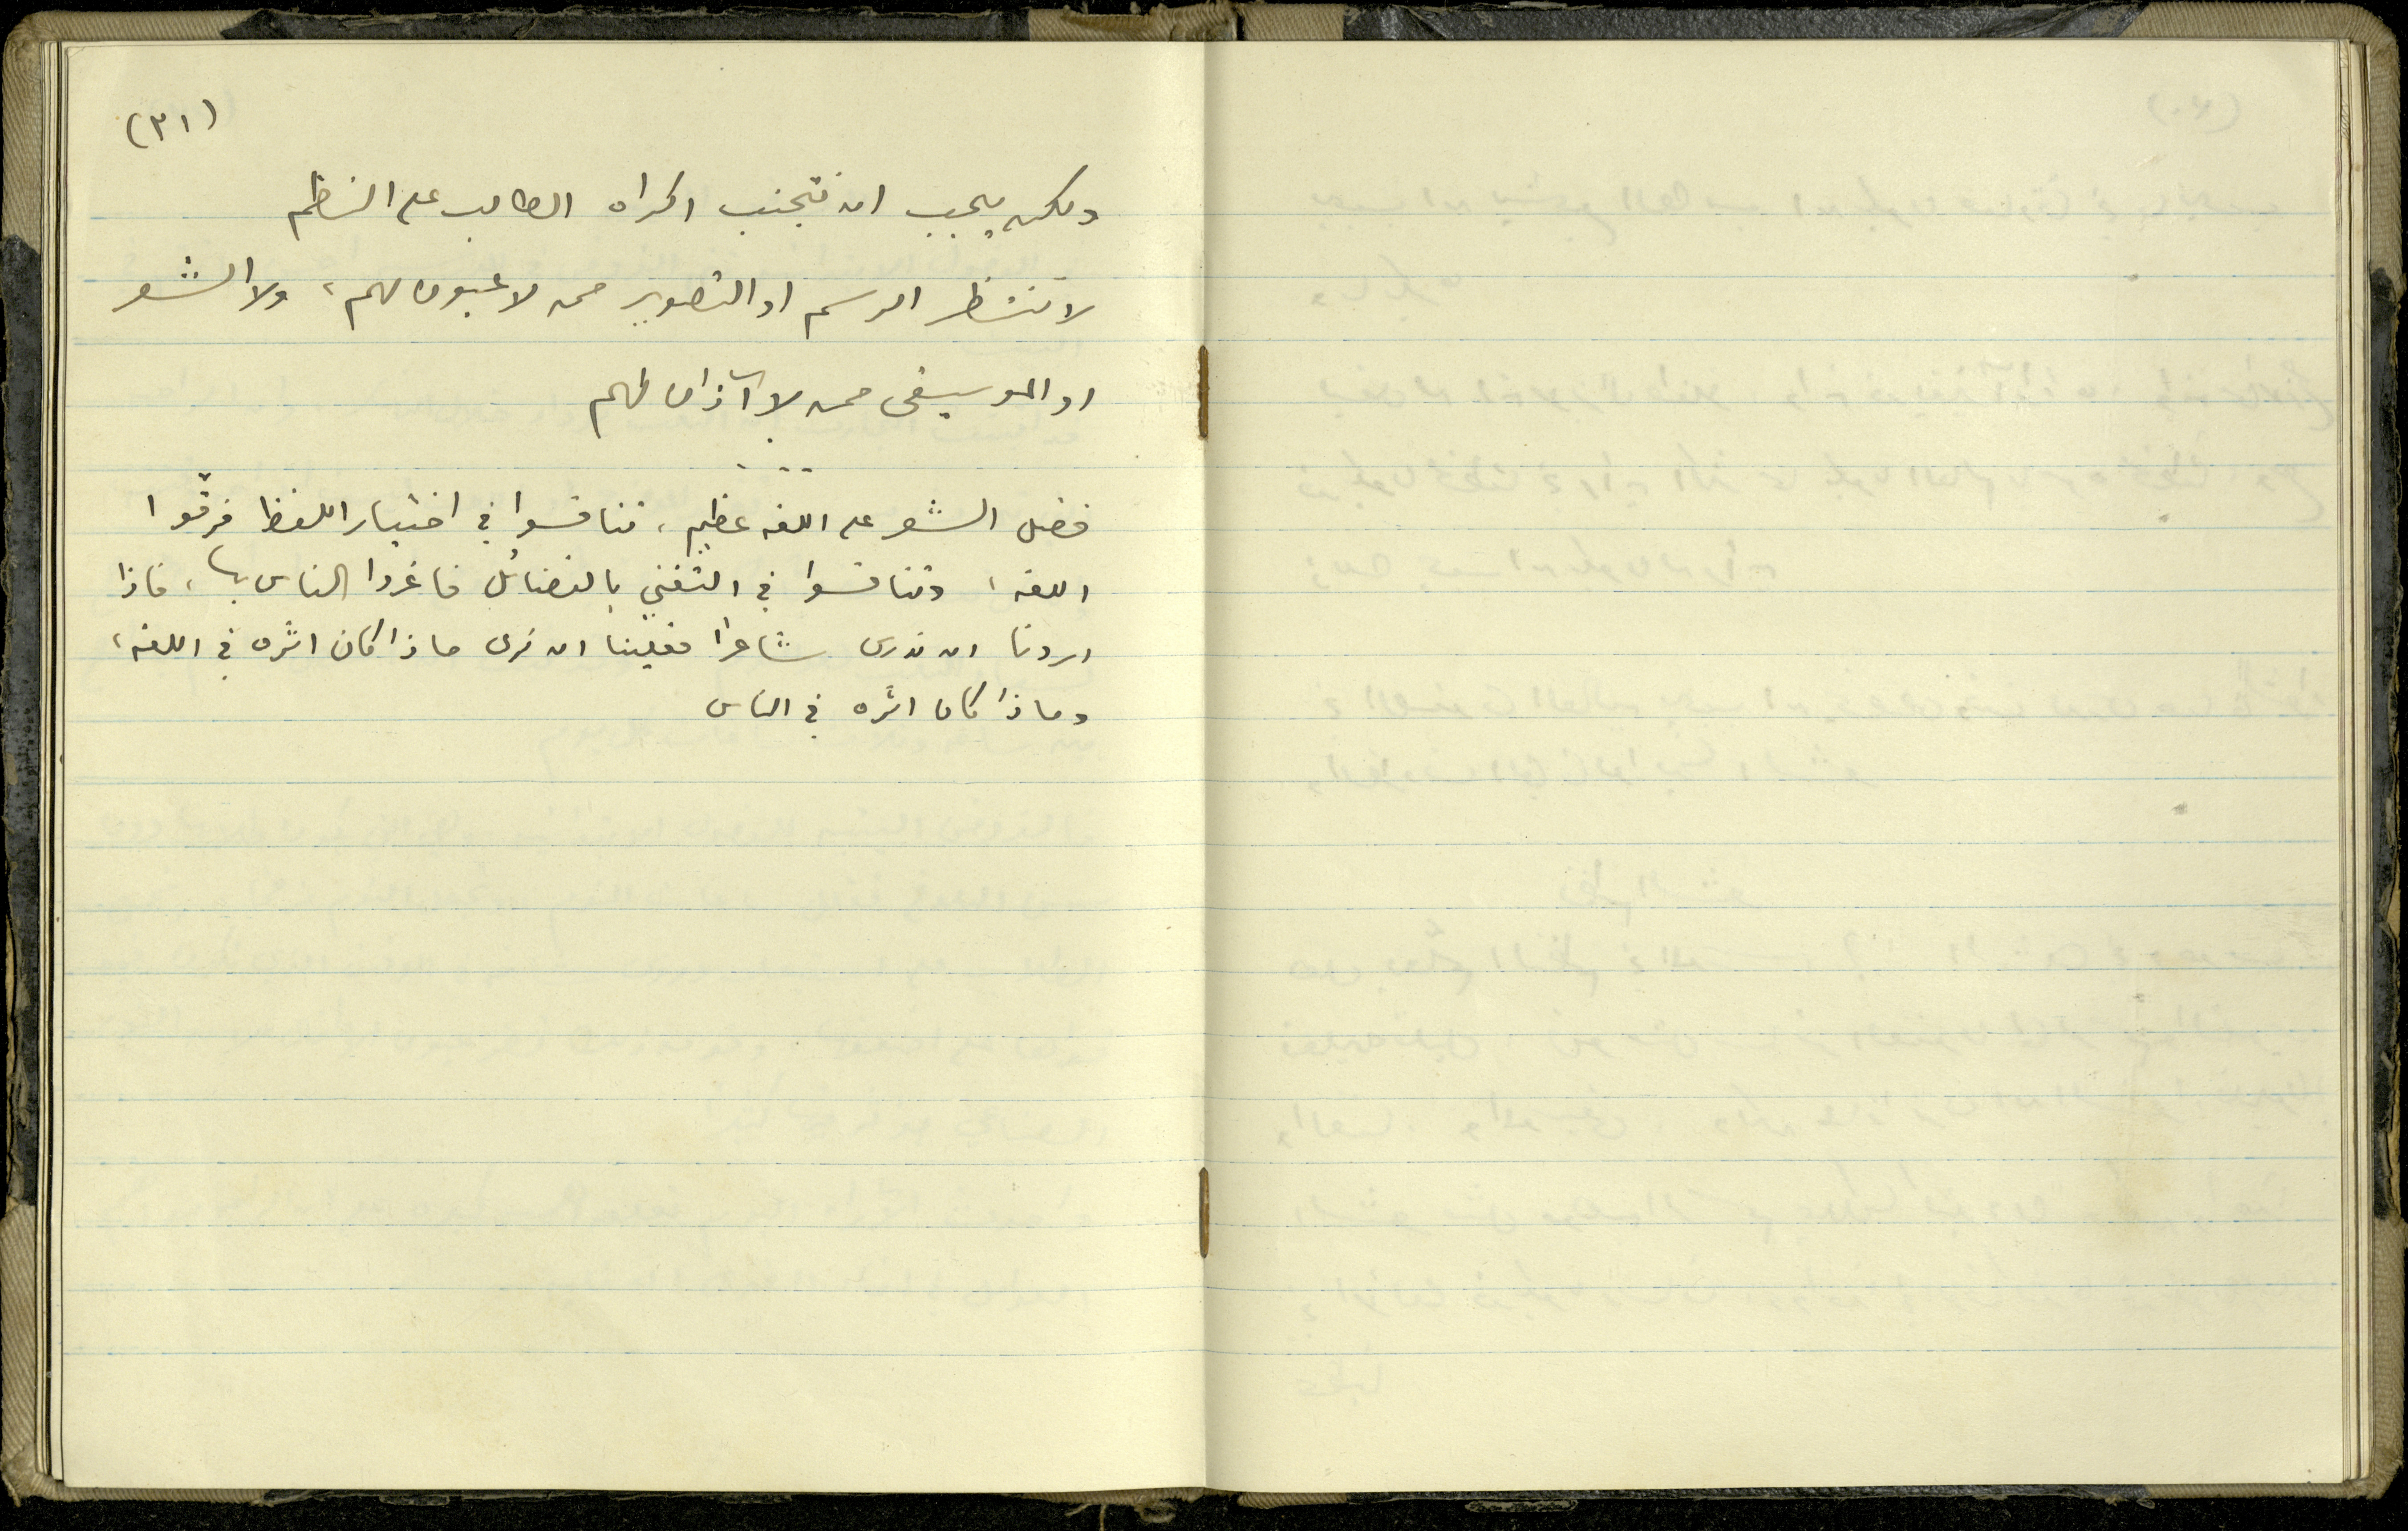 (٣١)
ولكن يجب ان نتجنب اكراه الطالب على النظم
لا تنتظر الرسم او التصوير ممن لا عيون لهم، ولا الشعر
او الموسيقى ممن لا آذان لهم
فضل الشعر على اللغه عظيم، تنافسوا في اختيار اللفظ فرقّوا
اللغه، وتنافسوا في التغني بالفضائل فاغروا الناس بها، فاذا
اردنا ان ندرس شاعرا فعلينا ان نرى ماذا كان اثره في اللغه،
وماذا كان اثره في الناس